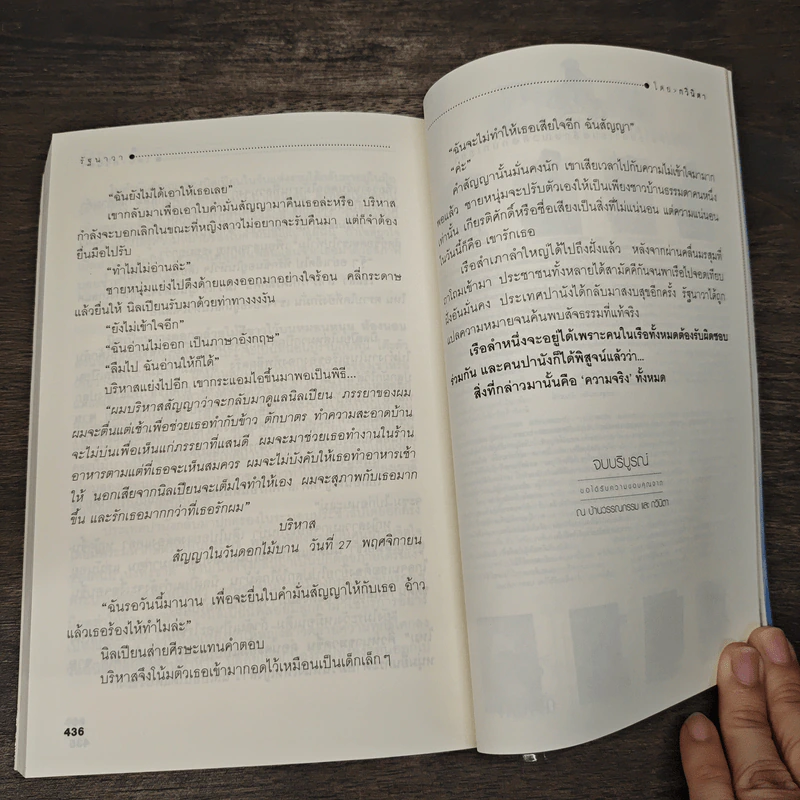 รัฐนาวา
“ฉันยังไม่ได้เอาให้เธอเลย”
เขากลับมาเพื่อเอาใบคำมั่นสัญญามาคืนเธอล่ะหรือ บริหาส
กำลังจะบอกเลิกในขณะที่หญิงสาวไม่อยากจะรับคืนมา แต่ก็จำต้อง
ยื่นมือไปรับ
“ทำไมไม่อ่านล่ะ”
ชายหนุ่มแย่งไปดึงด้ายแดงออกมาอย่างใจร้อน คลี่กระดาษ
แล้วยื่นให้ นิลเปียนรับมาด้วยท่าทางงงงัน
“ยังไม่เข้าใจอีก”
“ฉันอ่านไม่ออก เป็นภาษาอังกฤษ”
“ลืมไป ฉันอ่านให้ก็ได้”
บริหาสแย่งไปอีก เขากระแอมไอขึ้นมาพอเป็นพิธี...
“ผมบริหาสสัญญาว่าจะกลับมาดูแลนิลเปียน ภรรยาของผม
ผมจะตื่นแต่เช้าเพื่อช่วยเธอทำกับข้าว ตักบาตร ทำความสะอาดบ้าน
จะไม่บ่นเพื่อเห็นแก่ภรรยาที่แสนดี ผมจะมาช่วยเธอทำงานในร้าน
อาหารตามแต่ที่เธอจะเห็นสมควร ผมจะไม่บังคับให้เธอทำอาหารเช้า
ให้ นอกเสียจากนิลเปียนจะเต็มใจทำให้เอง ผมจะสุภาพกับเธอมาก
ขึ้น และรักเธอมากกว่าที่เธอรักผม”
บริหาส
สัญญาในวันดอกไม้บาน วันที่ 27 พฤศจิกายน
“ฉันรอวันนี้มานาน เพื่อจะยื่นใบคำมั่นสัญญาให้กับเธอ อ้าว
แล้วเธอร้องไห้ทำไมล่ะ”
นิลเปียนส่ายศีรษะแทนคำตอบ
บริหาสจึงโน้มตัวเธอเข้ามากอดไว้เหมือนเป็นเด็กเล็กๆ
436
โดย กวินิตา
“ฉันจะไม่ทำให้เธอเสียใจอีก ฉันสัญญา”
“ค่ะ”
คำสัญญานั้นมั่นคงนัก เขาเสียเวลาไปกับความไม่เข้าใจมามาก
พอแล้ว ชายหนุ่มจะปรับตัวเองให้เป็นเพียงชาวบ้านธรรมดาคนหนึ่ง
เท่านั้น เกียรติศักดิ์หรือชื่อเสียงเป็นสิ่งที่ไม่แน่นอน แต่ความแน่นอน
ในวันนี้ก็คือ เขารักเธอ
เรือสำเภาลำใหญ่ได้ไปถึงฝั่งแล้ว หลังจากผ่านคลื่นมรสุมที่
ถาโถมเข้ามา ประชาชนทั้งหลายได้สามัคคีกันจนพาเรือไปจอดเทียบ
ฝั่งอันมั่นคง ประเทศปานังได้กลับมาสงบสุขอีกครั้ง รัฐนาวาได้ถูก
แปลความหมายจนค้นพบสัจธรรมที่แท้จริง
เรือลำหนึ่งจะอยู่ได้เพราะคนในเรือทั้งหมดต้องรับผิดชอบ
ร่วมกัน และคนปานังก็ได้พิสูจน์แล้วว่า...
สิ่งที่กล่าวมานั้นคือ ‘ความจริง’ ทั้งหมด
จบบริบูรณ์
ขอได้รับความขอบคุณจาก
ณ บ้านวรรณกรรม และ กวินิตา